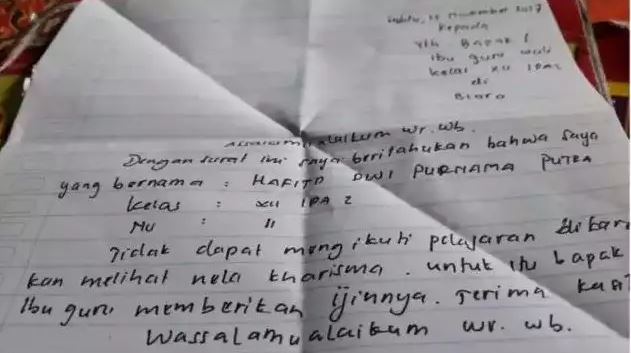 November 2017
Kepada
Yth Bapak /
Ibu guru wali
kelas XII IPA 2
di
Blora
Assalamualaikum wr. wb.
Dengan surat ini saya beritahukan bahwa saya
yang bernama : HAFITD DWI PURNAMA PUTRA
kelas : XII IPA 2
NU : 11
Tidak dapat mengikuti pelajaran dikar
kan melihat nela kharisma . untuk itu bapak
Ibu guru memberikan ijinnya. Terima kasi
Wassalamualaikum wr. wb.